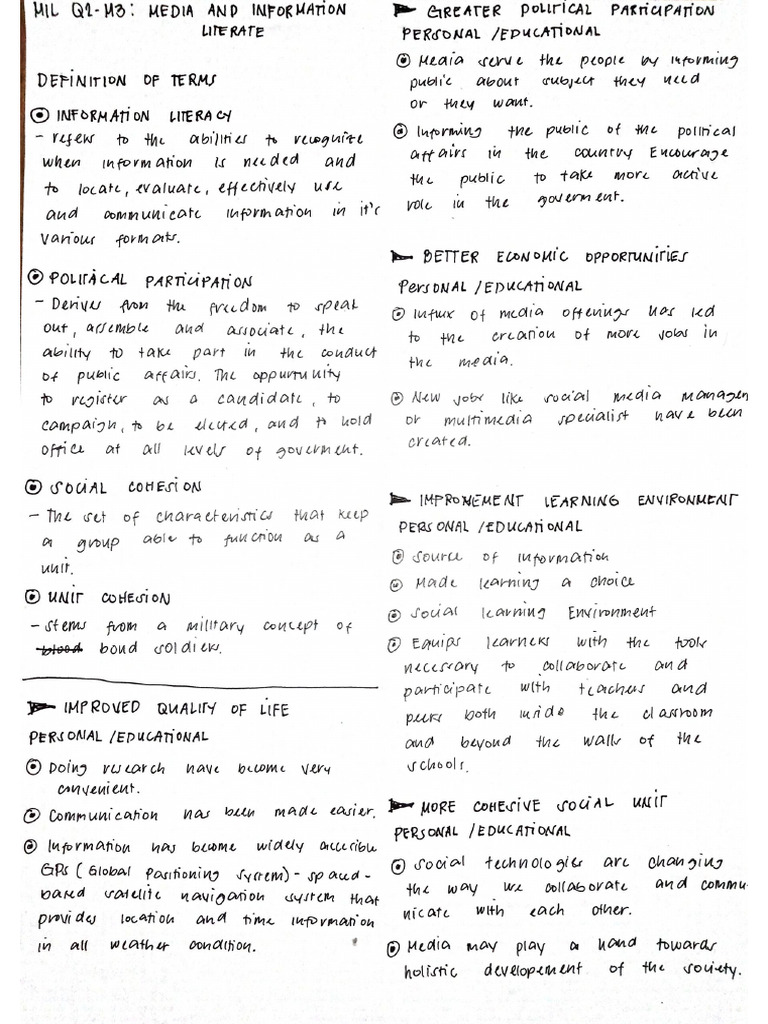 MIL Q2-M3: MEDIA AND INFORMATION
LITERATE
DEFINITION OF TERMS
INFORMATION LITERACY
- refers to the abilities to recognize
when information is needed and
to locate, evaluate, effectively use
and communicate information in it's
various formats.
POLITICAL PARTICIPATION
- Derives from the freedom to speak
out, assemble and associate, the
ability to take part in the conduct
of public affairs. The oppurtunity
to register as a candidate, to
campaign, to be elected, and to hold
office at all levels of goverment.
SOCIAL COHESION
- The set of characteristics that keep
a group able to function as a
unit.
UNIT COHESION
- stems from a military concept of
blood bond soldiers.
IMPROVED QUALITY OF LIFE
PERSONAL /EDUCATIONAL
Doing research have become very
convenient.
Communication has been made easier.
Information has become widely accesible
GPS (Global Positioning System) - spaced-
based satelite navigation system that
provides location and time information
in all weather condition.
GREATER POLITICAL PARTICIPATION
PERSONAL /EDUCATIONAL
Media serve the people by informing
public about subject they need
or they want.
Informing the public of the political
affairs in the country Encourage
the public to take more active
role in the goverment.
BETTER ECONOMIC OPPORTUNITIES
PERSONAL /EDUCATIONAL
Influx of media offerings has led
to the creation of more jobs in
the media.
New jobs like social media manager
or multimedia specialist have been
created.
IMPROVEMENT LEARNING ENVIRONMENT
PERSONAL /EDUCATIONAL
Source of information
Made learning a choice
Social learning Environment
Equips learners with the tools
necessary to collaborate and
participate with teachers and
peers both inside the classroom
and beyond the walls of the
schools.
MORE COHESIVE SOCIAL UNIT
PERSONAL /EDUCATIONAL
Social technologies are changing
the way we collaborate and commu-
nicate with each other.
Media may play a hand towards
holistic developement of the society.